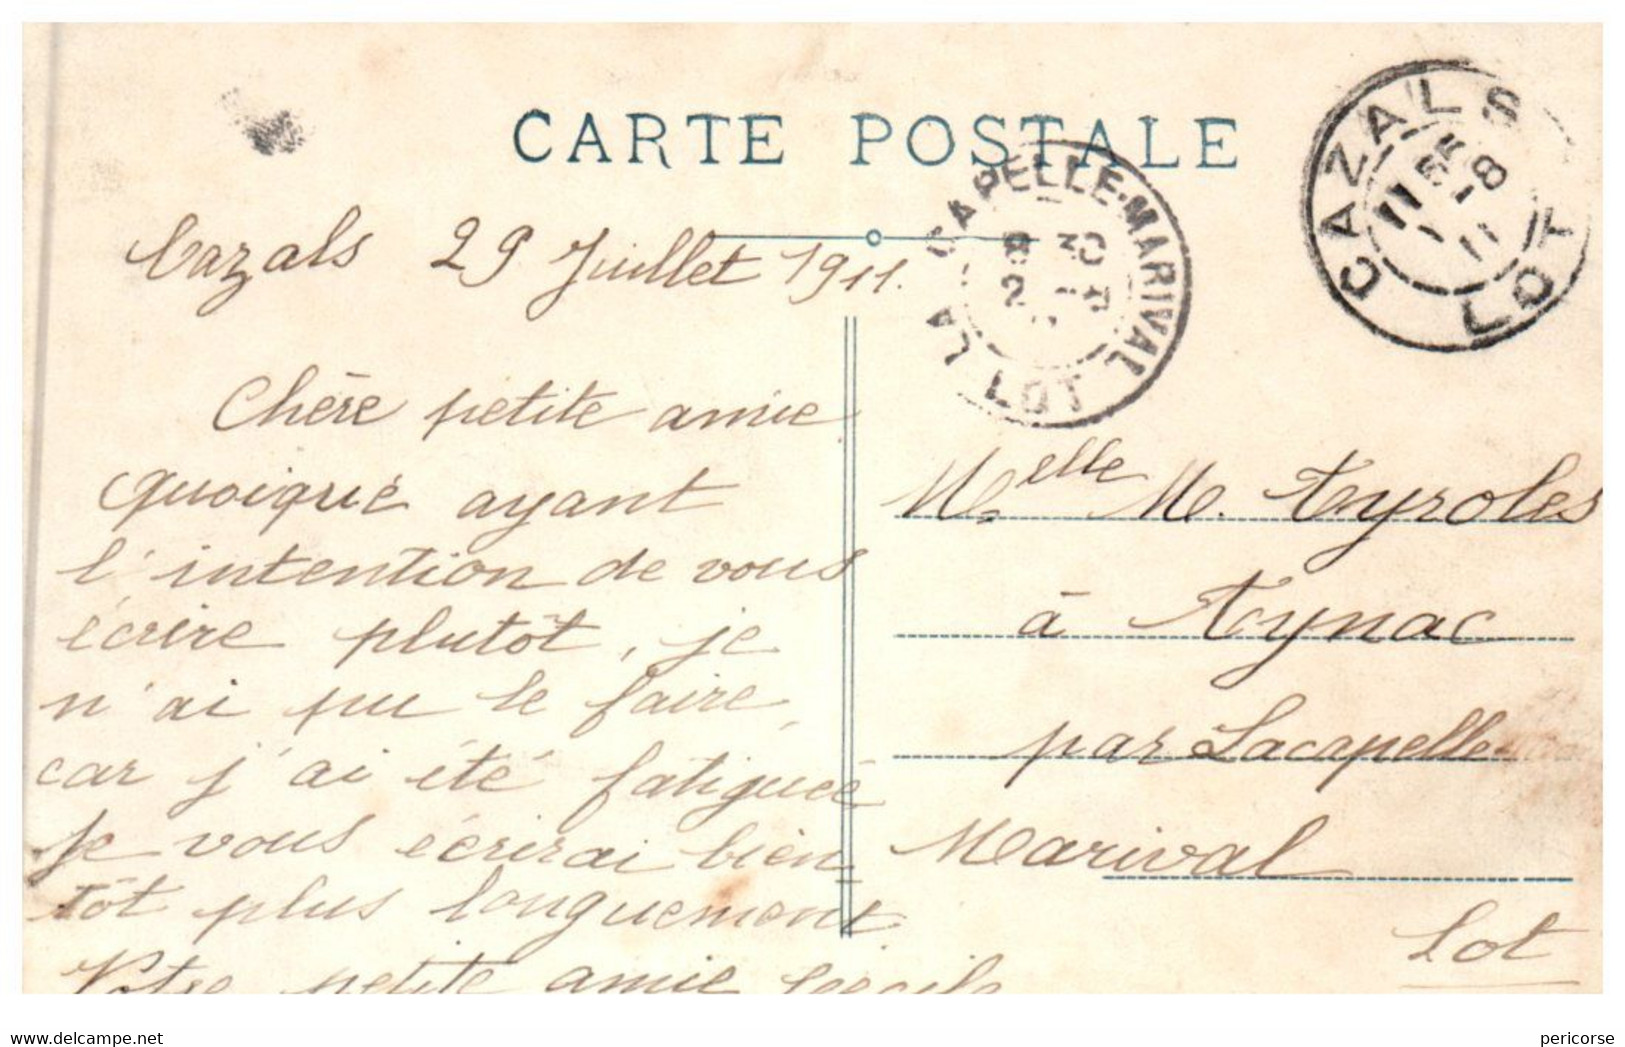 CARTE POSTALE
CAZALS
11 55
1 -8
11
LOT
LACAPELLE-MARIVAL
8 30
2 -8
LOT
Cazals 29 Juillet 1911.
Chère petite amie
quoique ayant
l'intention de vous
écrire plutôt, je
n'ai pu le faire,
car j'ai été fatiguée
je vous écrirai bien
tôt plus longuement
Votre petite amie Cécile
Melle M. Ayroles
à Aynac
par Lacapelle-
Marival
Lot
www.delcampe.net
pericorse